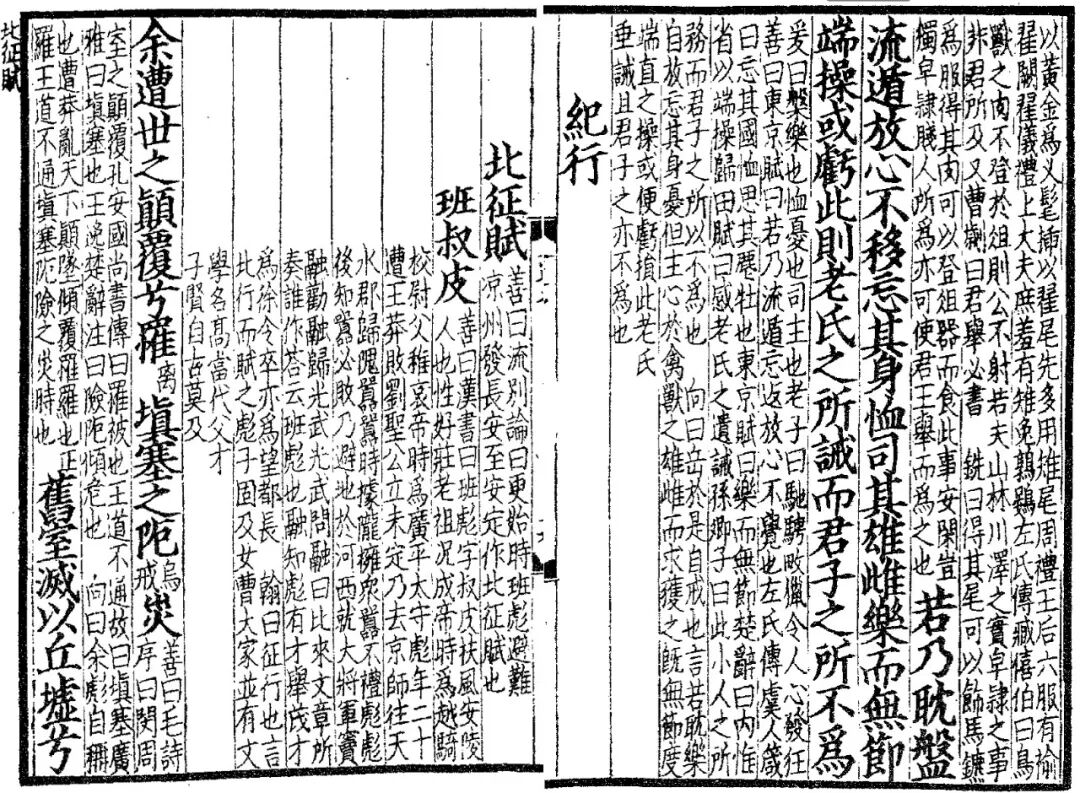 以黃金爲义髦揷以翟尾先多用雉尾周禮王后六服有褕
翟闕翟儀禮上大夫庶羞有雉兔鶉鷃左氏傳臧僖伯曰鳥
獸之肉不登於俎則公不射若夫山林川澤之實皁隷之事
非君所及又曹劌曰君舉必書 銑曰得其尾可以飾馬鑣
爲服得其肉可以登俎器而食此事安閑豈
獨皁隷賤人所爲亦可使君王舉而爲之也
若乃耽盤
流遁放心不移忘其身恤司其雄雌樂而無節
端操或虧此則老氏之所誡而君子之所不爲
爰曰槃樂也恤憂也司主也老子曰馳騁畋獵令人心發狂
善曰東京賦曰若乃流遁忘返放心不覺也左氏傳虞人箴
曰忘其國恤思其麀牡也東京賦曰樂而無節楚辭曰內惟
省以端操歸田賦曰感老氏之遺誡孫卿子曰此小人之所
務而君子之所以不爲也 向曰岳於是自戒也言若耽樂
自放忘其身憂但主心於禽獸之雄雌而求獲之旣無節度
端直之操或使虧損此老氏
垂誡且君子之亦不爲也
紀行
北征賦
善曰流別論曰更始時班彪避難
凉州發長安至安定作北征賦也
班叔皮
善曰漢書曰班彪字叔皮扶風安陵
人也性好莊老祖況成帝時爲越騎
校尉父稚哀帝時爲廣平太守彪年二十
遭王莽敗劉聖公立未定乃去京師往天
水郡歸隗囂囂時據隴擁衆囂不禮彪彪
後知囂必敗乃避地於河西就大將軍竇
融勸融歸光武光武問融曰比來文章所
奏誰作荅云班彪也融知彪有才舉茂才
爲徐令卒亦爲望都長 翰曰征行也言
北行而賦之彪子固及女曹大家並有文
學名髙當代父才
子賢自古莫及
余遭世之顚覆兮罹
离
塡塞之阨
烏
戒
災
善曰毛詩
序曰閔周
室之顚覆孔安國尚書傳曰羅被也王道不通故曰塡塞廣
雅曰塡塞也王逸楚辭注曰險阨傾危也 向曰余彪自稱
也曹莽亂天下顚墜傾覆羅罹也正
羅王道不通塡塞阨險之災時也
舊室滅以丘墟兮
北征賦